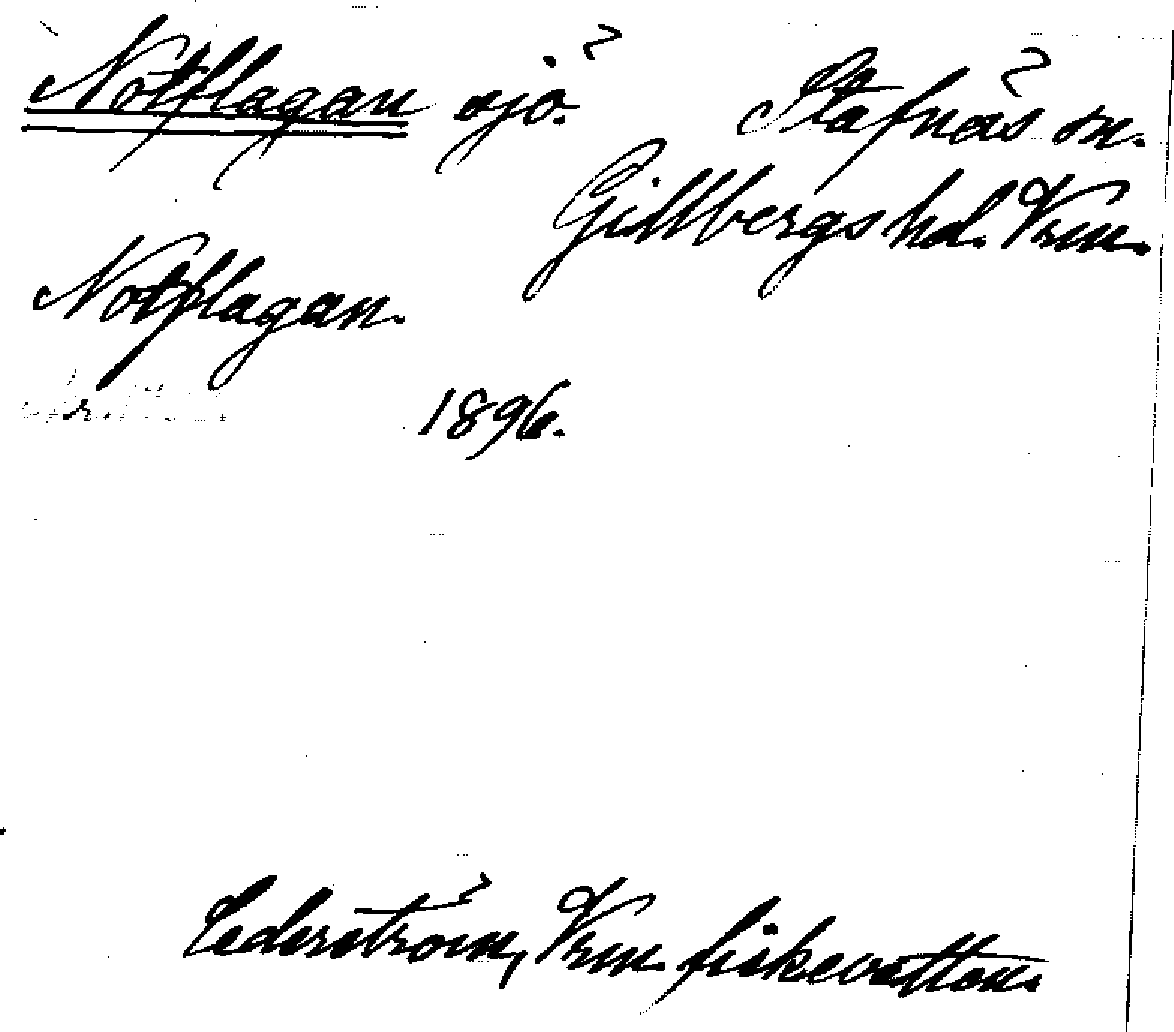 Notflagan sjö. Stafnäs sn.
Gillbergs hd. Vrm.
Notflagan.
1896.
Cederström, Vrm. fiskevatten.